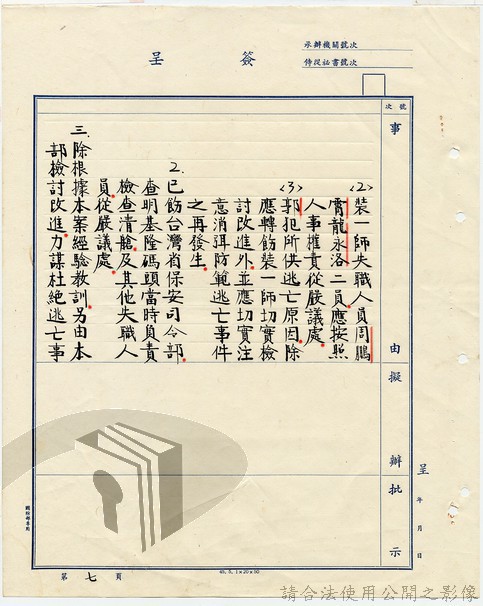 簽呈
承辦機關號次
侍從祕書號次
號次
事由擬辦批示
〈2〉裝一師失職人員周鵬
霄龍永洛二員應按照
人事權責從嚴議處
〈3〉郭犯所供逃亡原因除
應轉飭裝一師切實檢
討改進外並應切實注
意消弭防範逃亡事件
之再發生
2.已飭台灣省保安司令部
查明基隆碼頭當時負責
檢查清艙及其他失職人
員從嚴議處
三.除根據本案經驗教訓另由本
部檢討改進力謀杜絕逃亡事
呈 年 月 日
第七頁
請合法使用公開之影像